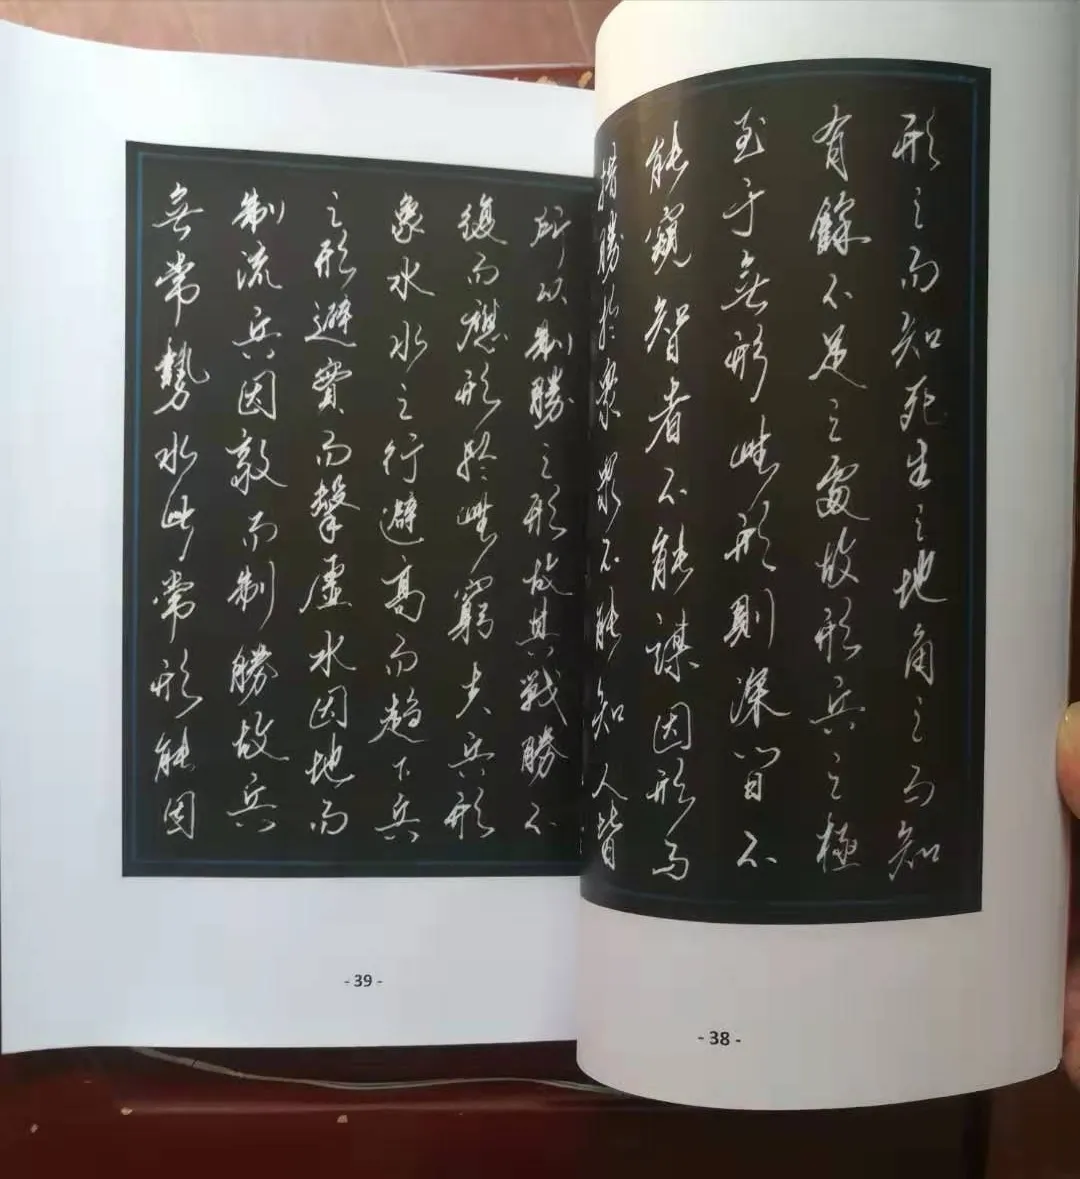 形之而知死生之地角之而知
有餘不足之處故形兵之極
至于無形無形則深間不
能窺智者不能謀因形而
措勝於衆衆不能知人皆
- 38 -
所以制勝之形故其戰勝不
復而應形於無窮夫兵形
象水水之行避高而趨下兵
之形避實而擊虛水因地而
制流兵因敵而制勝故兵
無常勢水無常形能因
- 39 -